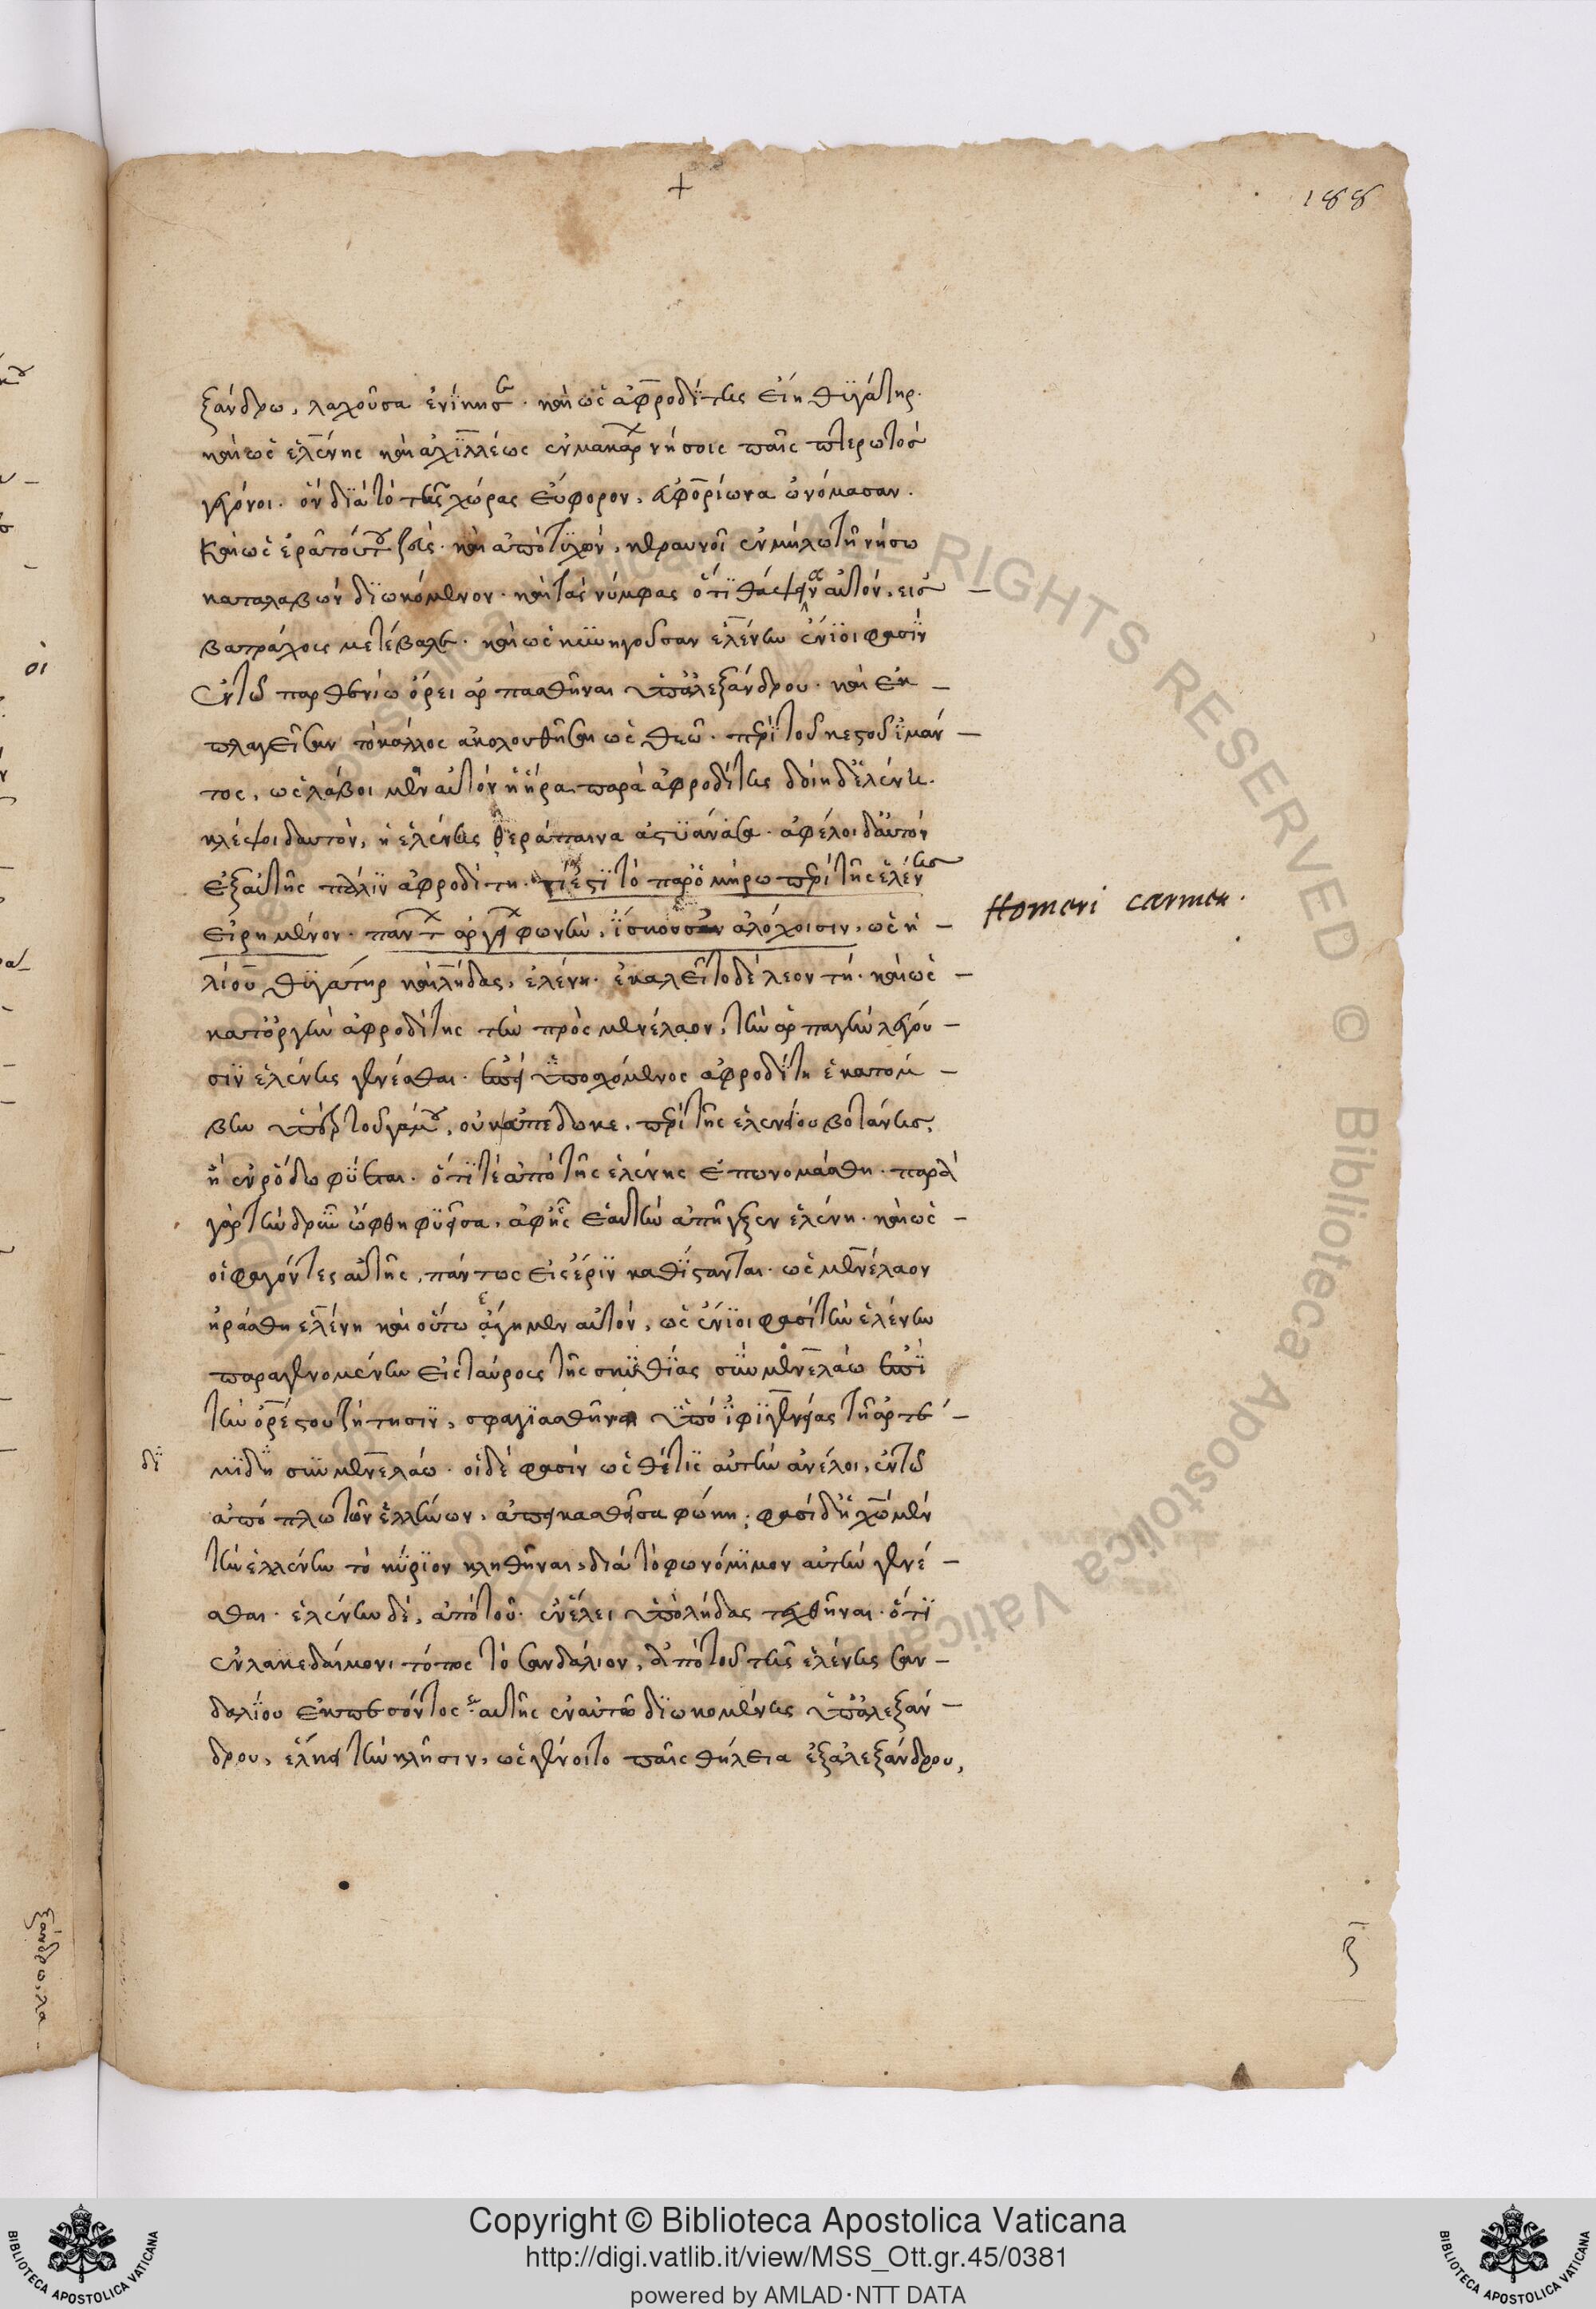 188
ξάνδρω, λαχοῦσα ἐνίκησε. καὶ ὡς ἀφροδίτης εἴη θυγάτηρ.
καὶ ὡς ἑλένης καὶ ἀχιλλέως ἐν μακάρων νήσοις παῖς πτερωτὸς
γεγόνοι. ὃν διὰ τὸ τῆς χώρας εὔφορον, εὐφορίωνα ὠνόμασαν.
καὶ ὡς ἐρᾶ τούτου ζεύς. καὶ ἀποτυχὼν, κεραυνοῖ ἐν μήλω τῇ νήσω
καταλαβὼν διωκόμενον. καὶ τὰς νύμφας ὅτι θάψειαν αὐτόν, εἰς
βατράχους μετέβαλε. καὶ ὡς κυνηγοῦσαν ἑλένην ἔνιοι φασὶν
ἐν τῶ παρθενίω ὄρει ἁρπασθῆναι ὑπ' ἀλεξάνδρου. καὶ ἐκ
πλαγεῖσαν τὸ κάλλος ἀκολουθῆσαι ὡς θεῶ. περὶ τοῦ κεστοῦ ἱμάν
τος, ὡς λάβοι μὲν αὐτὸν ἡ ἥρα παρὰ ἀφροδίτης δοίη δ' ἑλένη.
κλέψοι δ' αὐτὸν, ἡ ἑλένης θεράπαινα ἀστυάνασσα. ἀφέλοι δ' αὐτὸν
ἐξ αὐτῆς πάλιν ἀφροδίτη. τί ἐστι τὸ παρ' ὁμήρω περὶ τῆς ἑλένης
εἰρημένον. πάντων ἀργείων φωνὴν, ἴσκουσαν ἀλόχοισιν, ὡς ἡ
Homeri carmen.
λίου θυγάτηρ καὶ λήδας, ἑλένη. ἐκαλεῖτο δὲ λεοντή. καὶ ὡς
κατ' ὀργὴν ἀφροδίτης τὴν πρὸς μενέλαον, τὴν ἁρπαγὴν λέγου
σιν ἑλένης γενέσθαι. ἐπεὶ ὑποσχόμενος ἀφροδίτη ἑκατόμ
βην ὑπὲρ τοῦ γάμου, οὐκ ἀπέδωκε. περὶ τῆς ἑλενείου βοτάνης,
ἣ ἐν ῥόδω φύεται. ὅτι τε ἀπὸ τῆς ἑλένης ἐπωνομάσθη. παρὰ
γὰρ τὴν δρῦν ὤφθη φυεῖσα, ἀφ' ἧς ἑαυτὴν ἀπῆγξεν ἑλένη. καὶ ὡς
οἱ φαγόντες αὐτῆς, πάντως εἰς ἔριν καθίστανται. ὡς μενέλαον
ἠράσθη ἑλένη καὶ οὕτω ἔγημεν αὐτόν, ὡς ἔνιοι φασὶ τὴν ἑλένην
παραγενομένην εἰς ταύρους τῆς σκυθίας σὺν μενελάω ἐπὶ
τὴν ὀρέστου ζήτησιν, σφαγιασθῆναι ὑπὸ ἰφιγενείας τῇ ἀρτέ
δι
μιδι σὺν μενελάω. οἱ δὲ φασὶν ὡς θέτις αὐτὴν ἀνέλοι, ἐν τῶ
ἀπόπλω τῶν ἑλλήνων, ἀπεικασθεῖσα φώκη. φασὶ δὴ
τὴν ἑλένην τὸ κύριον κληθῆναι, διὰ τὸ φωνόμιμον αὐτὴν γενέ
σθαι. ἑλένην δὲ, ἀπὸ τοῦ ἐν ἕλει ὑπὸ λήδας τεχθῆναι. ὅτι
ἐν λακεδαίμονι τόπος τὸ σανδάλιον, ἀπὸ τοῦ τῆς ἑλένης σαν
δαλίου ἐκπεσόντος αὐτῆς ἐν αὐτῶ διωκομένης ὑπ' ἀλεξάν
δρου, ἕλκει τὴν κλῆσιν, ὡς γένοιτο παῖς θήλεια ἐξ ἀλεξάνδρου,
Copyright © Biblioteca Apostolica Vaticana
http://digi.vatlib.it/view/MSS_Ott.gr.45/0381
powered by AMLAD·NTT DATA